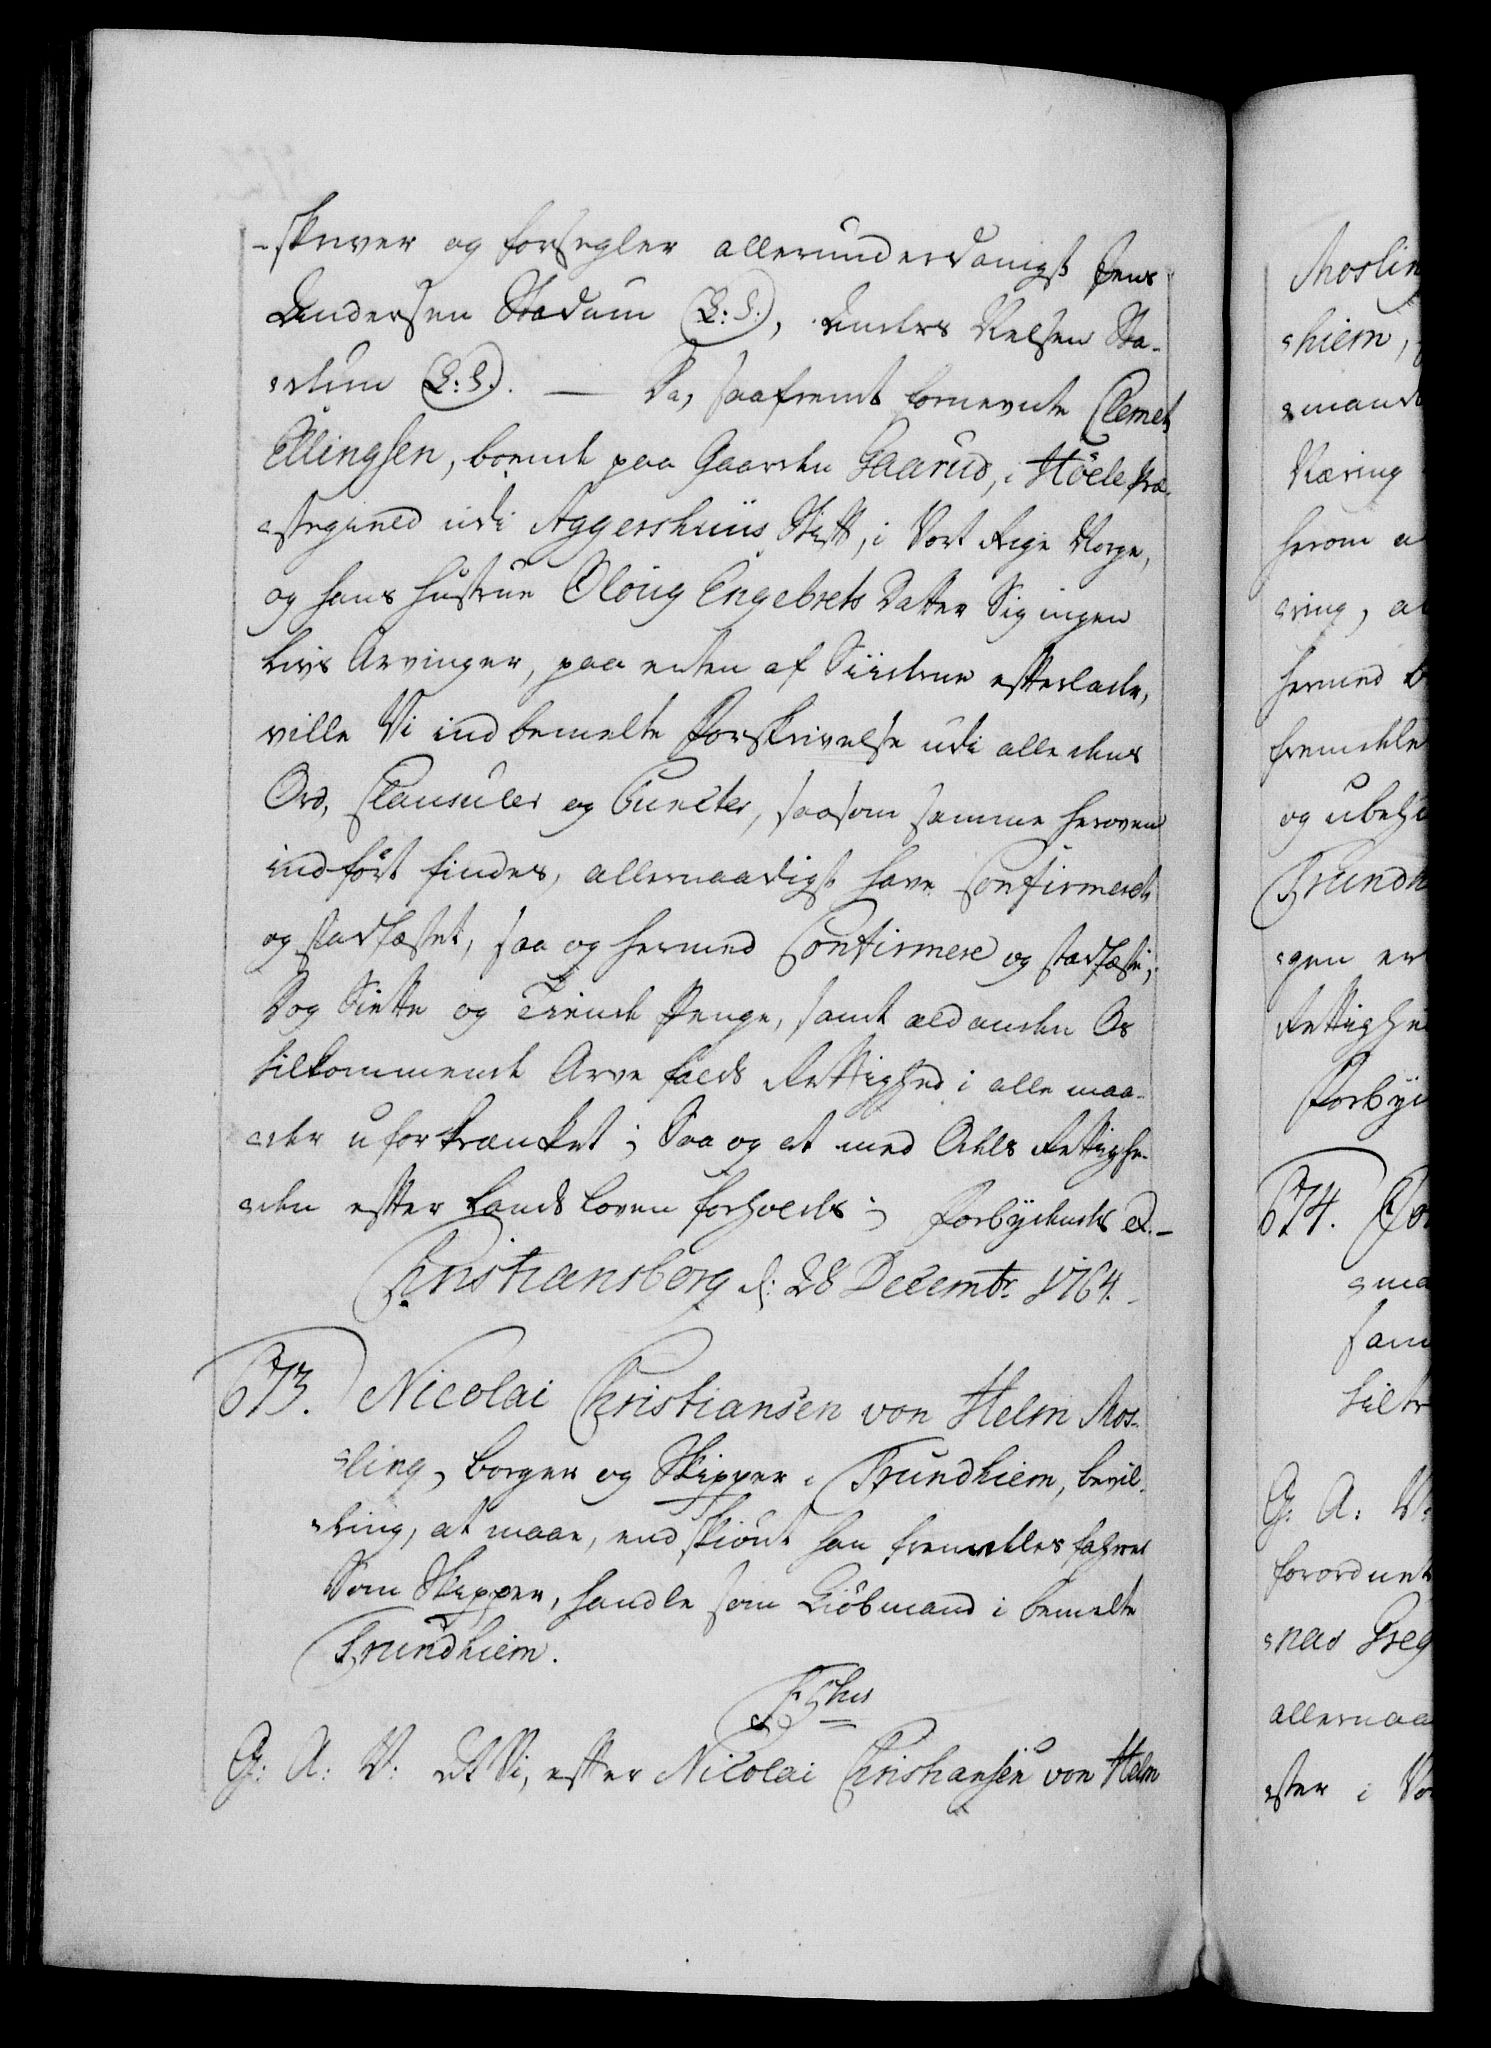 -skriver og forsegler allerunderdanigst Jens
Andersen Stadum (L:S:), Anders Nelsen Sta-
-dum (L:S:). — Da, saafremt fornevnte Clemet
Ellingsen, boende paa Gaarden Gaarud, i Höele Præ-
-stegield udi Aggershuus Stift, i Vort Rige Norge,
og hans Hustrue Oloug Engebrets Datter Sig ingen
Livs Arvinger, paa enten af Siiderne efterlade,
ville Vi indbemelte Forskrivelse udi alle dens
Ord, Clausuler og Puncter, saasom samme heroven
indfört findes, allernaadigst have Confirmeret
og stadfæstet, saa og hermed Confirmere og stadfæste;
Dog Siette og Tiende Penge, samt ald anden Os
tilkommende Arve falds Rettighed i alle maa-
-der uforkrænket; Saa og at med Odels Rettighe-
-den efter Lands Loven forholdes; Forbydendes &.-
Christiansborg d: 28 Decembr. 1764.
673. Nicolai Christiansen von Helm Mos-
-ling, borger og Skipper i Trundhiem, bevil-
-ling, at maae, endskiönt han fremdeles fahrer
Som Skipper, handle som Kiöbmand i bemelte
Trundhiem.
F 5tus
G: A: V: At Vi, efter Nicolai Christiansen von Helm
Mosling
-hiem,
Næring
herom
-ring,
hermed
fremdele
og
-gen
674.
G: A: V:
forordnet
allernaa
-ster i